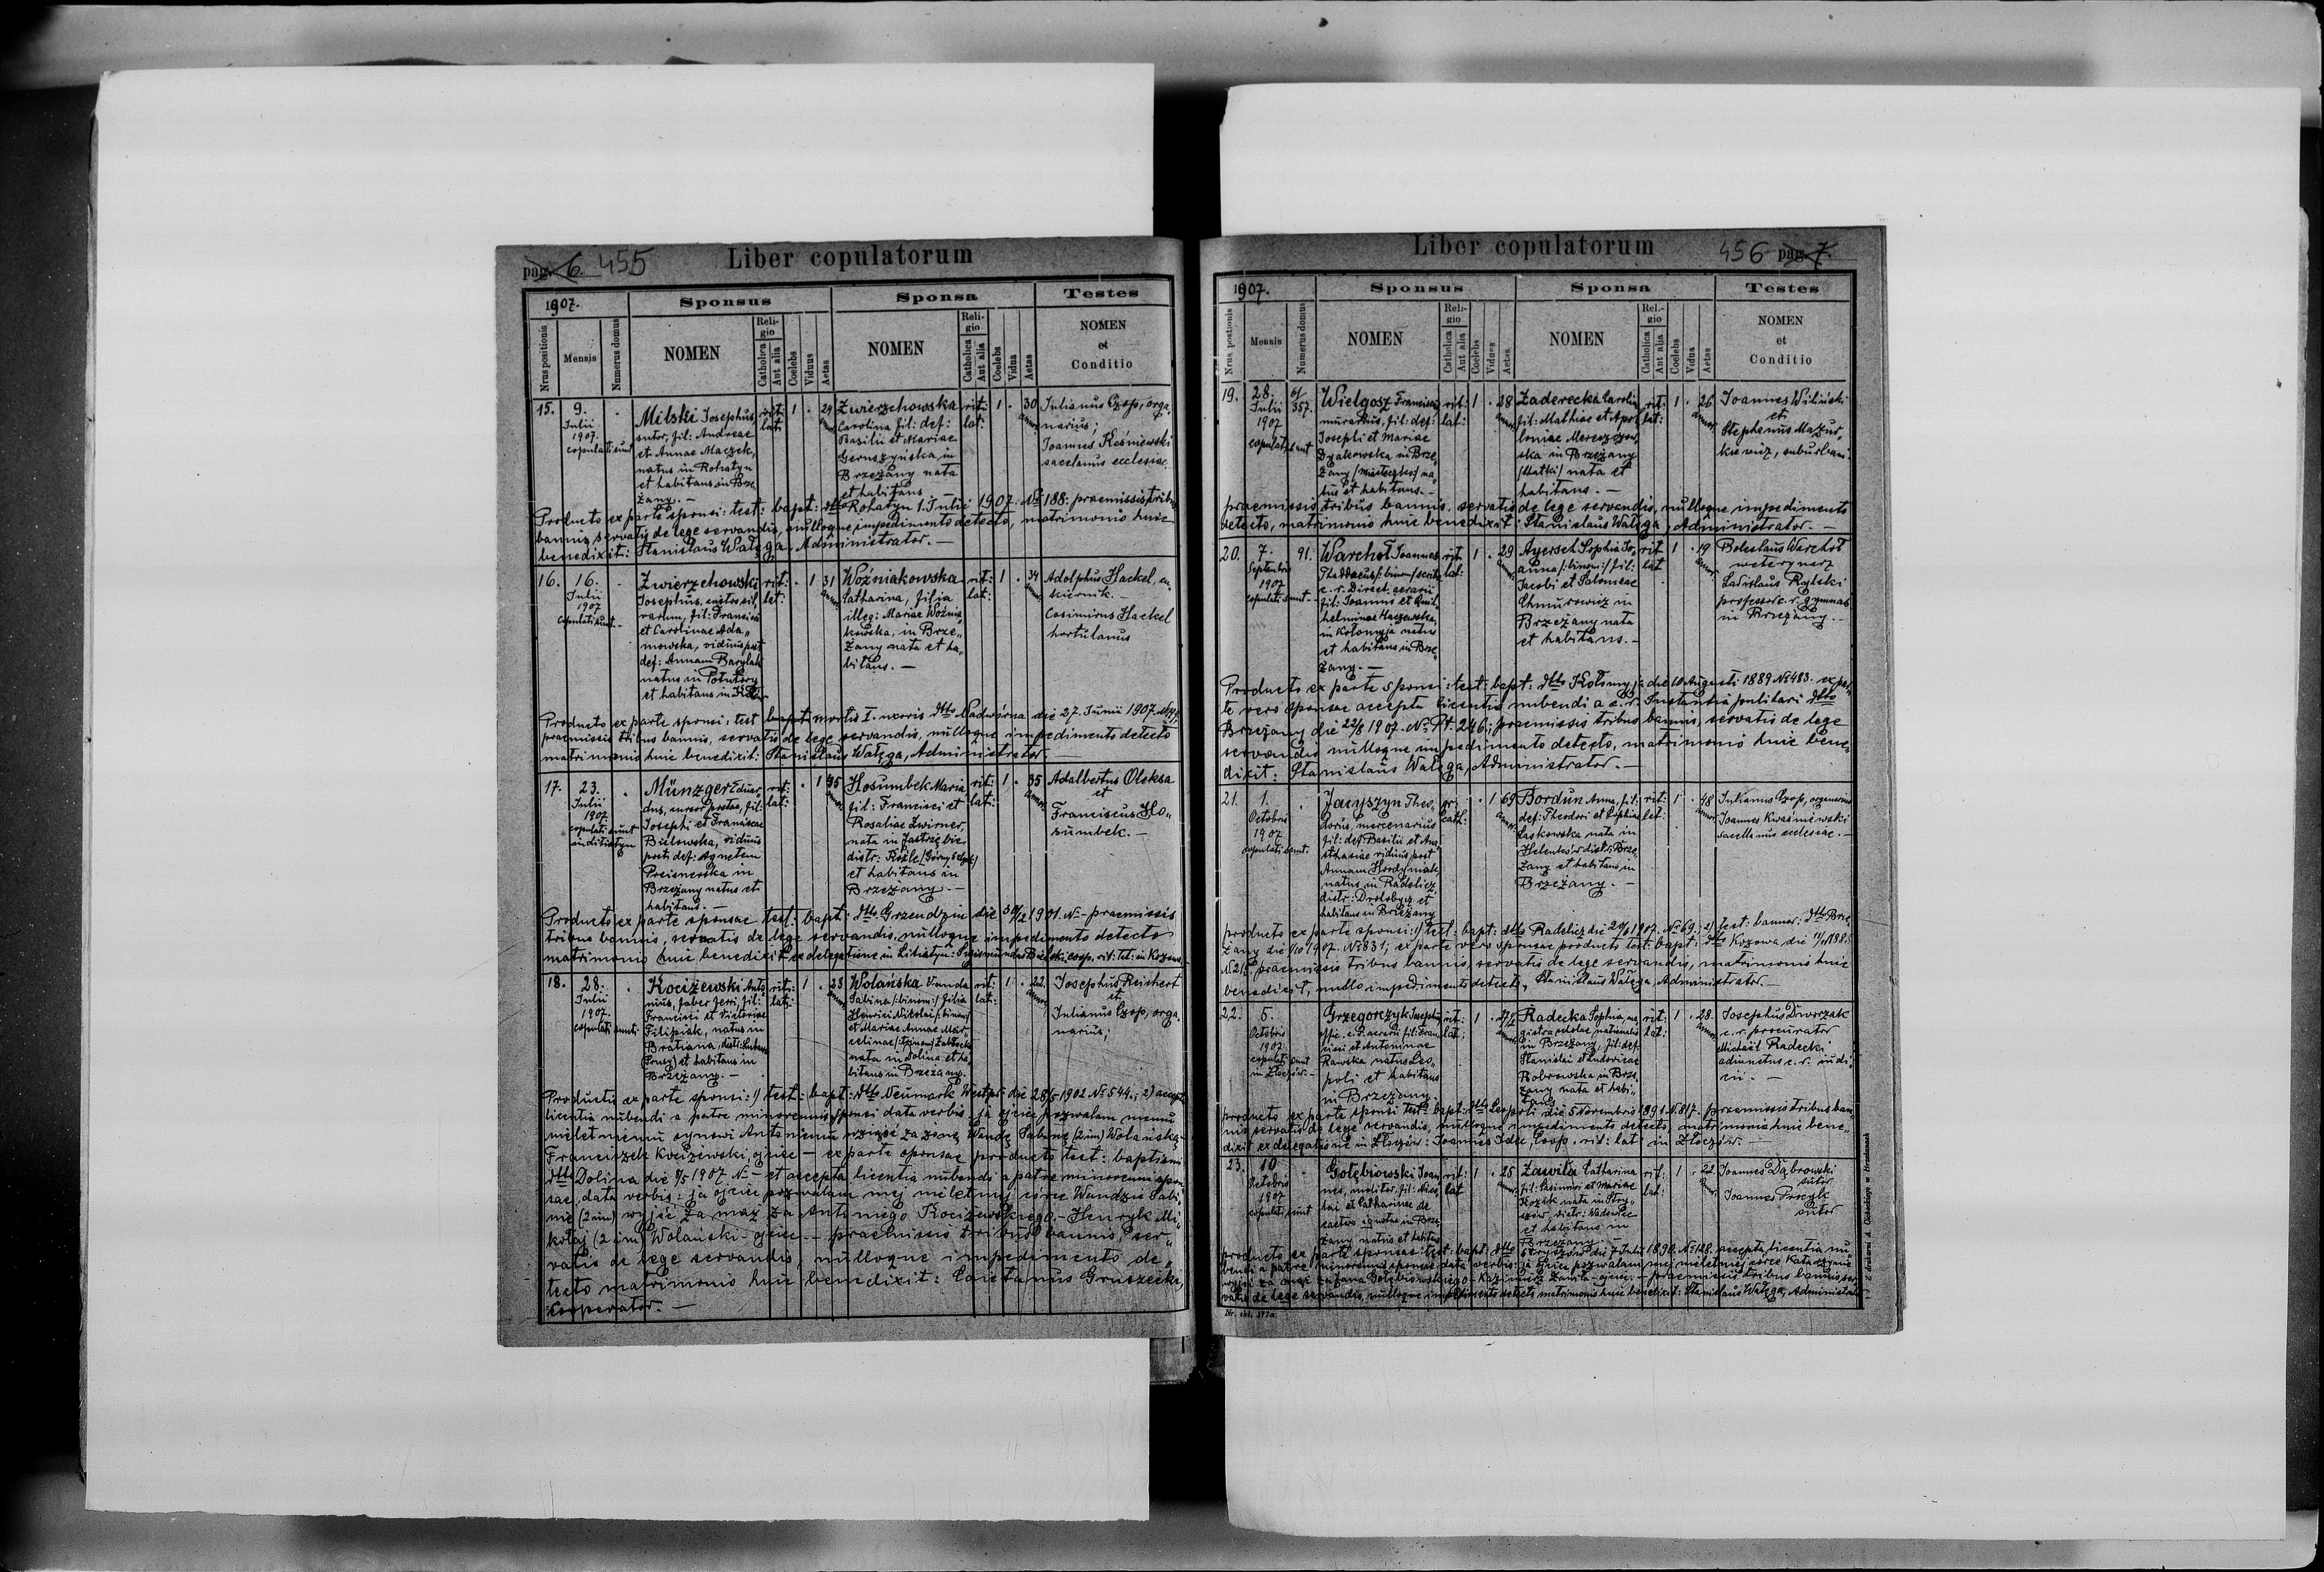 pag. 6. 455
Liber copulatorum
1907.
Sponsus
Sponsa
Testes
Nrus positionis
Mensis
Numerus domus
NOMEN
Religio
Catholica
Aut alia
Coelebs
Viduus
Aetas
NOMEN
Religio
Catholica
Aut alia
Coelebs
Vidua
Aetas
NOMEN
et
Conditio
15.
9.
Julii
1907.
copulati sunt
Milski Josephus,
sutor, fil: Andreae
et Annae Maczek,
natus in Rohatyn
et habitans in Brze
żany. —
rit:
lat:
1 . 24
Zwierzchowska
Carolina fil: def:
Basilii et Mariae
Geruszyńska in
Brzeżany nata
et habitans
rit:
lat:
1 . 30
Julianus Czop, orga„
narius;
Joannes
sacelanus ecclesiae
Producto ex parte sponsi: test: bapt: dtto Rohatyn 1. Julii 1907. № 188: praemissis tribus
bannis, servatis de lege servandis, nulloque impedimento detecto, matrimonio huic
benedixit: Stanislaus Wałęga, Administrator. —
16.
16.
Julii
1907
copulati sunt. —
Zwierzchowski
Josephus, custos sil„
varum, fil: Francisci
et Carolinae Ada„
mowska, viduus post
def: Annam Barylak
natus in Potutory
et habitans in
rit:
lat:
. 1 31
Woźniakowska
Catharina, filia
illeg: Mariae Woźnia„
kowska, in Brze„
żany nata et ha„
bitans. —
rit:
lat:
1 . 34
Adolphus Hackel, cu„
kiernik. —
Casimirus Hackel
hortulanus
Producto ex parte sponsi: test mortis I. uxoris dtto Nadwórna die 27. Junii 1907.
praemissis tribus bannis, servatis de lege servandis, nulloque impedimento detecto
matrimonio huic benedixit: Stanislaus Wałęga, Administrator. —
17.
23.
Julii
1907
copulati sunt
in Litiatyn
Münzger Eduar„
dus, cursor postae, fil:
Josephi et Franciscae
Bielowska, viduus
post def: Agnetem
Preisnerska in
Brzeżany natus et
habitans. —
rit:
lat:
. 1 35
Hosumbek Maria
fil: Francisci et
Rosaliae Zwirner,
nata in Jastrzębie
distr: Koźle (Górny Szląsk)
et habitans in
Brzeżany. —
rit:
lat:
1 . 35
Adalbertus Oleksa
et
Franciscus Ho„
sumbek. —
Producto ex parte sponsae test: bapt: dtto Grzendzin die 30/12 1901. № — praemissis
tribus bannis, servatis de lege servandis, nulloque impedimento detecto
matrimonio huic benedixit ex delegatione in Litiatyn: Sigismundus Bielski, coop. rit: lat: in Kozowa. —
18.
28.
Julii
1907.
copulati sunt.
Kociżewski Anto
nius, faber ferri, fil:
Francisci et Victoriae
Filipiak, natus in
Bratiana, distr:
et habitans in
Brzeżany. —
rit:
lat:
1 . 23
Wolańska Vanda
Sabina (: binom :) filia
Henrici Nicolai (: binom)
et Mariae Annae Mar„
celinae (: trinom)
nata in Dolina et ha„
bitans in Brzeżany.
rit:
lat:
1 . 22.
Josephus Reichert
et
Julianus Czop, orga„
narius;
Productis ex parte sponsi: 1) test: bapt: dtto Neumark Westpr. die 28/5 1902 № 544.; 2) accepta
licentia nubendi a patre minorennis sponsi data verbis: ja ojciec pozwalam memu
małetniemu synowi Antoniemu wziąść za żonę Wandę Sabinę (2 im) Wolańską —
Franciszek Kociżewski, ojciec — ex parte sponsae producto test: baptismi
dtto Dolina die 8/5 1907. № — et accepta licentia nubendi a patre minorennis spon
sae, data verbis: ja ojciec pozwalam mej małetniej córce Wandzie Sabi„
nie (2 im) wyjść za mąż za Antoniego Kociżewskiego. — Henryk Mi„
kołaj (2 im) Wolański — ojciec — praemissis tribus bannis, ser„
vatis de lege servandis, nulloque impedimento de„
tecto matrimonio huic benedixit: Caietanus Gruszecki,
Cooperator. —
Liber copulatorum
456 pag. 7.
1907.
Sponsus
Sponsa
Testes
Nrus positionis
Mensis
Numerus domus
NOMEN
Religio
Catholica
Aut alia
Coelebs
Viduus
Aetas
NOMEN
Religio
Catholica
Aut alia
Coelebs
Vidua
Aetas
NOMEN
et
Conditio
19.
28.
Julii
1907
copulati sunt
357.
Wielgosz Franciscus
murarius, fil: def:
Josephi et Mariae
Dziakowska in Brze„
żany (miasteczko) na„
tus et habitans. —
rit:
lat:
1 . 28
Zaderecka Carolina
fil: Mathiae et Apol
loniae Mereszczow
ska in Brzeżany
nata et
habitans. —
rit:
lat:
1 . 26
Joannes Wiliński
et
Stephanus Mazur„
kiewicz, suburbani.
praemissis tribus bannis, servatis de lege servandis, nulloque impedimento
detecto, matrimonio huic benedixit: Stanislaus Wałęga, Administrator. —
20.
7.
Septembris
1907
copulati sunt —
91.
Warchoł Joannes
Thaddaeus (: binom) scriba
c. r. Direct. aerarii
fil: Joannis et Guil„
helminae Haczewska,
in Kołomyja natus
et habitans in Brze„
żany. —
rit
lat:
1 . 29
Ayersch Sophia Jo„
anna (: binom :) fil:
Jacobi et Salomeae
Chmurowicz in
Brzeżany nata
et habitans. —
rit
lat
1 . 19
Boleslaus Warchoł
weterynarz
Ladislaus Rylski
professor c. r. gymnas.
in Brzeżany. —
Producto ex parte sponsi: test: bapt: dtto Kołomyja die 10 Augusti 1889 № 483. ex par„
te vero sponsae accepta licentia nubendi a c. r. Instantia pupillari dtto
Brzeżany die 22/8 1907. № P. 246.; praemissis tribus bannis, servatis de lege
servandis nulloque impedimento detecto, matrimonio huic bene„
dixit: Stanislaus Wałęga, Administrator. —
21.
1.
Octobris
1907
copulati sunt.
Jacyszyn Theo„
dorus, mercenarius
fil: def: Basilii et Ana„
sthasiae viduus post
Annam Hordyniak,
natus in Radelicz
distr: Drohobycz et
habitans in Brzeżany
gr:
cath:
. 1 69
Bordun Anna, fil:
def: Theodori et Sophiae
Laskowska nata in
Helenków distr: Brze„
żany et habitans in
Brzeżany. —
rit:
lat:
1 . 48
Julianus Czop, organarius
Joannes Kwaśniewski
sacellanus ecclesiae. —
producto ex parte sponsi: 1) test: bapt: dtto Radelicz die 29/8 1907. № 69.; 2) test: bannor: dtto Brze
żany die 1/10 1907. № 831; ex parte vero sponsae producto test: bapt: dtto Kozowa die
№ 215 praemissis tribus bannis, servatis de lege servandis, matrimonio huic
benedixit, nullo impedimento detecto, Stanislaus Wałęga, Administrator. —
22.
5.
Octobris
1907
copulati sunt
in Złoczów. —
Grzegorczyk Josephus
offic. c. r. aerarii fil: Fran„
cisci et Antoninae
Rawska natus Leo„
poli et habitans
in Brzeżany.
rit:
lat:
1 . 27½
Radecka Sophia, ma
gistra scholae
in Brzeżany, fil: def:
Stanislai et Ludovicae
Bobrowska in Brze„
żany nata et habi„
tans
rit:
lat:
1 . 28.
Josephus Dworzak
c. r. procurator
Michaël Radecki
adiunctus c. r. iudi„
cii. —
producto ex parte sponsi test: bapt: dtto Leopoli die 5 Novembris 1891. № 817. praemissis tribus ban„
nis servatis de lege servandis, nulloque impedimento detecto, matrimonio huic bene„
dixit ex delegatione in Złoczów: Joannes Idec, Coop. rit: lat in Złoczów. —
23.
10
Octobris
1907
copulati sunt
Gołębiowski Joan
nes, molitor fil: Nico
lai et Catharinae de
caetero ignotae in Brze
żany natus et habitans
rit:
lat
1 . 25
Zawiła Catharina
fil: Casimiri et Mariae
Kozik nata in Stry„
szów distr: Wadowice
et habitans in
Brzeżany. —
rit:
lat:
1 . 22
Joannes Dąbrowski
sutor
Joannes Procyk
sutor
producto ex parte sponsae: test: bapt: dtto Stryszów die 7 Julii 1890. № 128. accepta licentia nu„
bendi a patre minorennis sponsae data verbis: ja ojciec pozwalam mej małetniej córce Katarzynie
wyjść za mąż za Jana Gołębiowskiego — Kazimierz Zawiła — ojciec. — praemissis tribus bannis ser„
vatis de lege servandis, nulloque impedimento detecto matrimonio huic benedixit: Stanislaus Wałęga, Administrator
Z drukarni A. Cichockiego w Brzeżanach